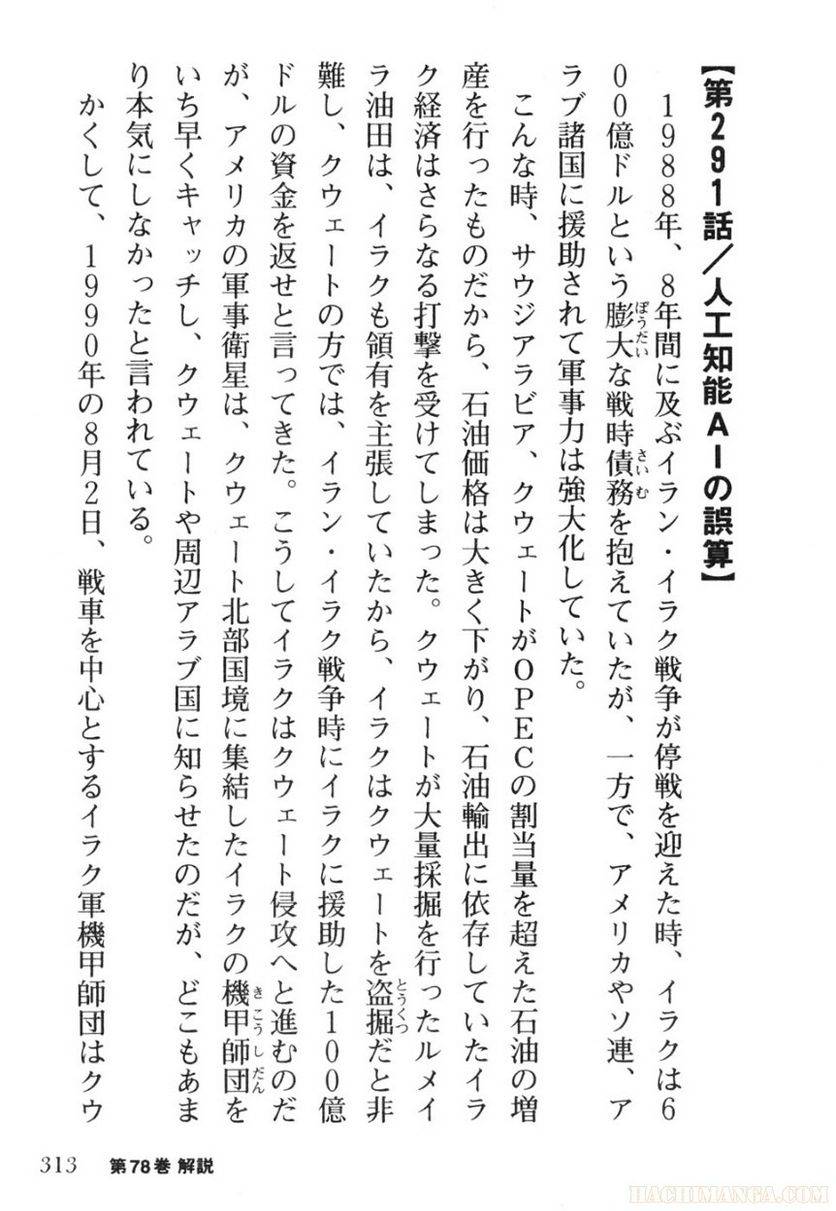 【第291話/人工知能AIの誤算】
1988年、8年間に及ぶイラン・イラク戦争が停戦を迎えた時、イラクは6
00億ドルという膨大な戦時債務を抱えていたが、一方で、アメリカやソ連、ア
ラブ諸国に援助されて軍事力は強大化していた。
こんな時、サウジアラビア、クウェートがOPECの割当量を超えた石油の増
産を行ったものだから、石油価格は大きく下がり、石油輸出に依存していたイラ
ク経済はさらなる打撃を受けてしまった。クウェートが大量採掘を行ったルメイ
ラ油田は、イラクも領有を主張していたから、イラクはクウェートを盗掘だと非
難し、クウェートの方では、イラン・イラク戦争時にイラクに援助した100億
ドルの資金を返せと言ってきた。こうしてイラクはクウェート侵攻へと進むのだ
が、アメリカの軍事衛星は、クウェート北部国境に集結したイラクの機甲師団を
いち早くキャッチし、クウェートや周辺アラブ国に知らせたのだが、どこもあま
り本気にしなかったと言われている。
かくして、1990年の8月2日、戦車を中心とするイラク軍機甲師団はクウ
ぼうだい
さいむ
とうくつ
きこうしだん
313 第78巻 解説
HACHIMANGA.COM